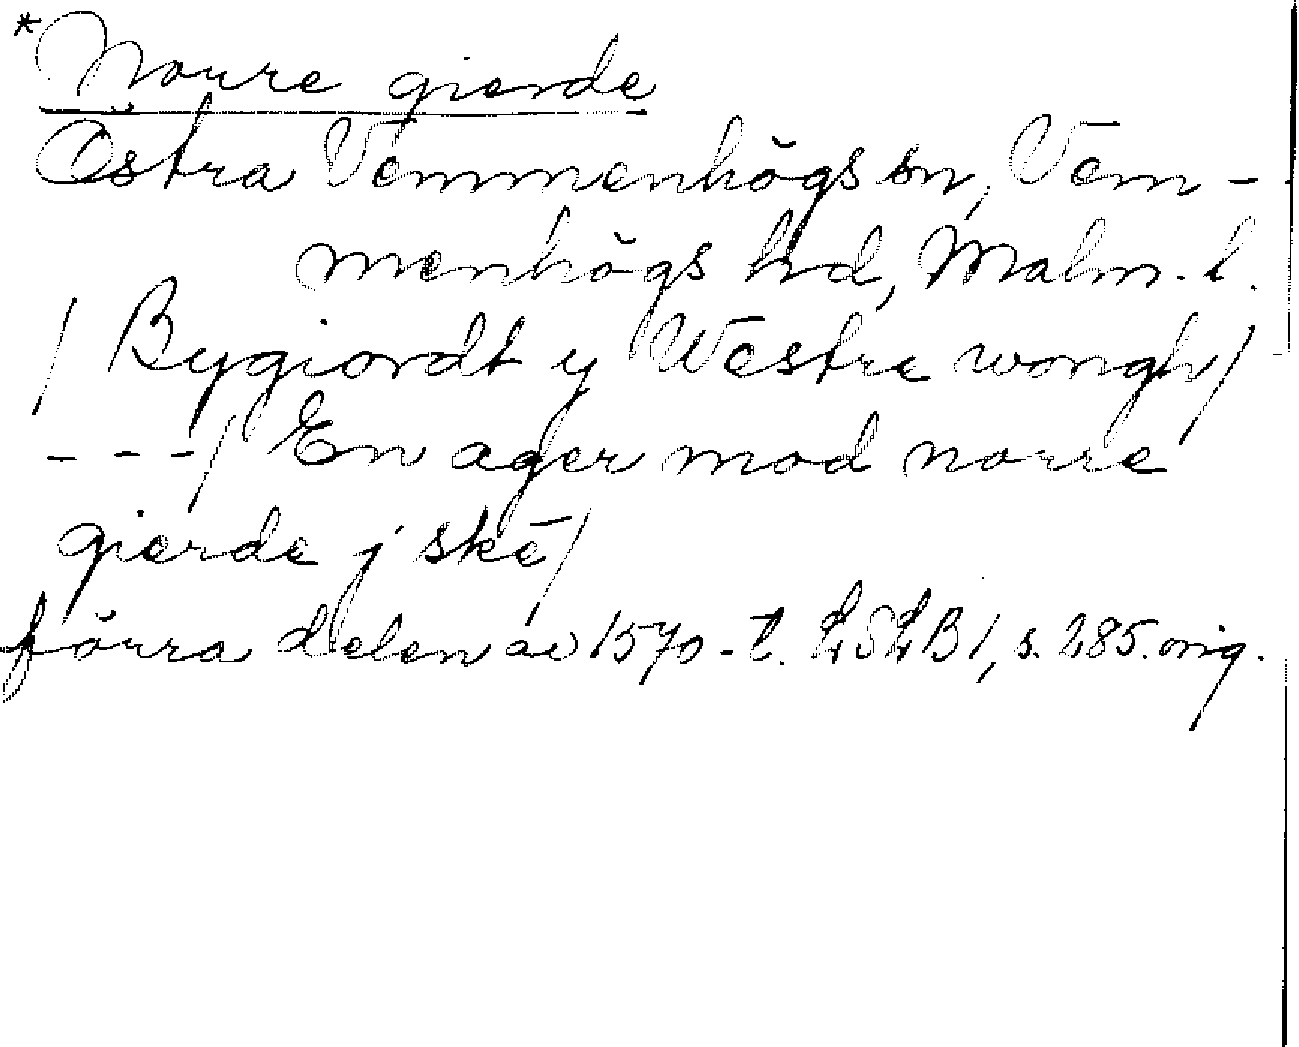 *Norre gierde
Östra Vemmenhögs sn, Vem-
menhögs hd, Malm. l.
/ Bygiordt y Westre wongh/
---/ En ager mod norre
gierde j skē/
förra delen av 1570-t. LSLB1, s. 285. orig.